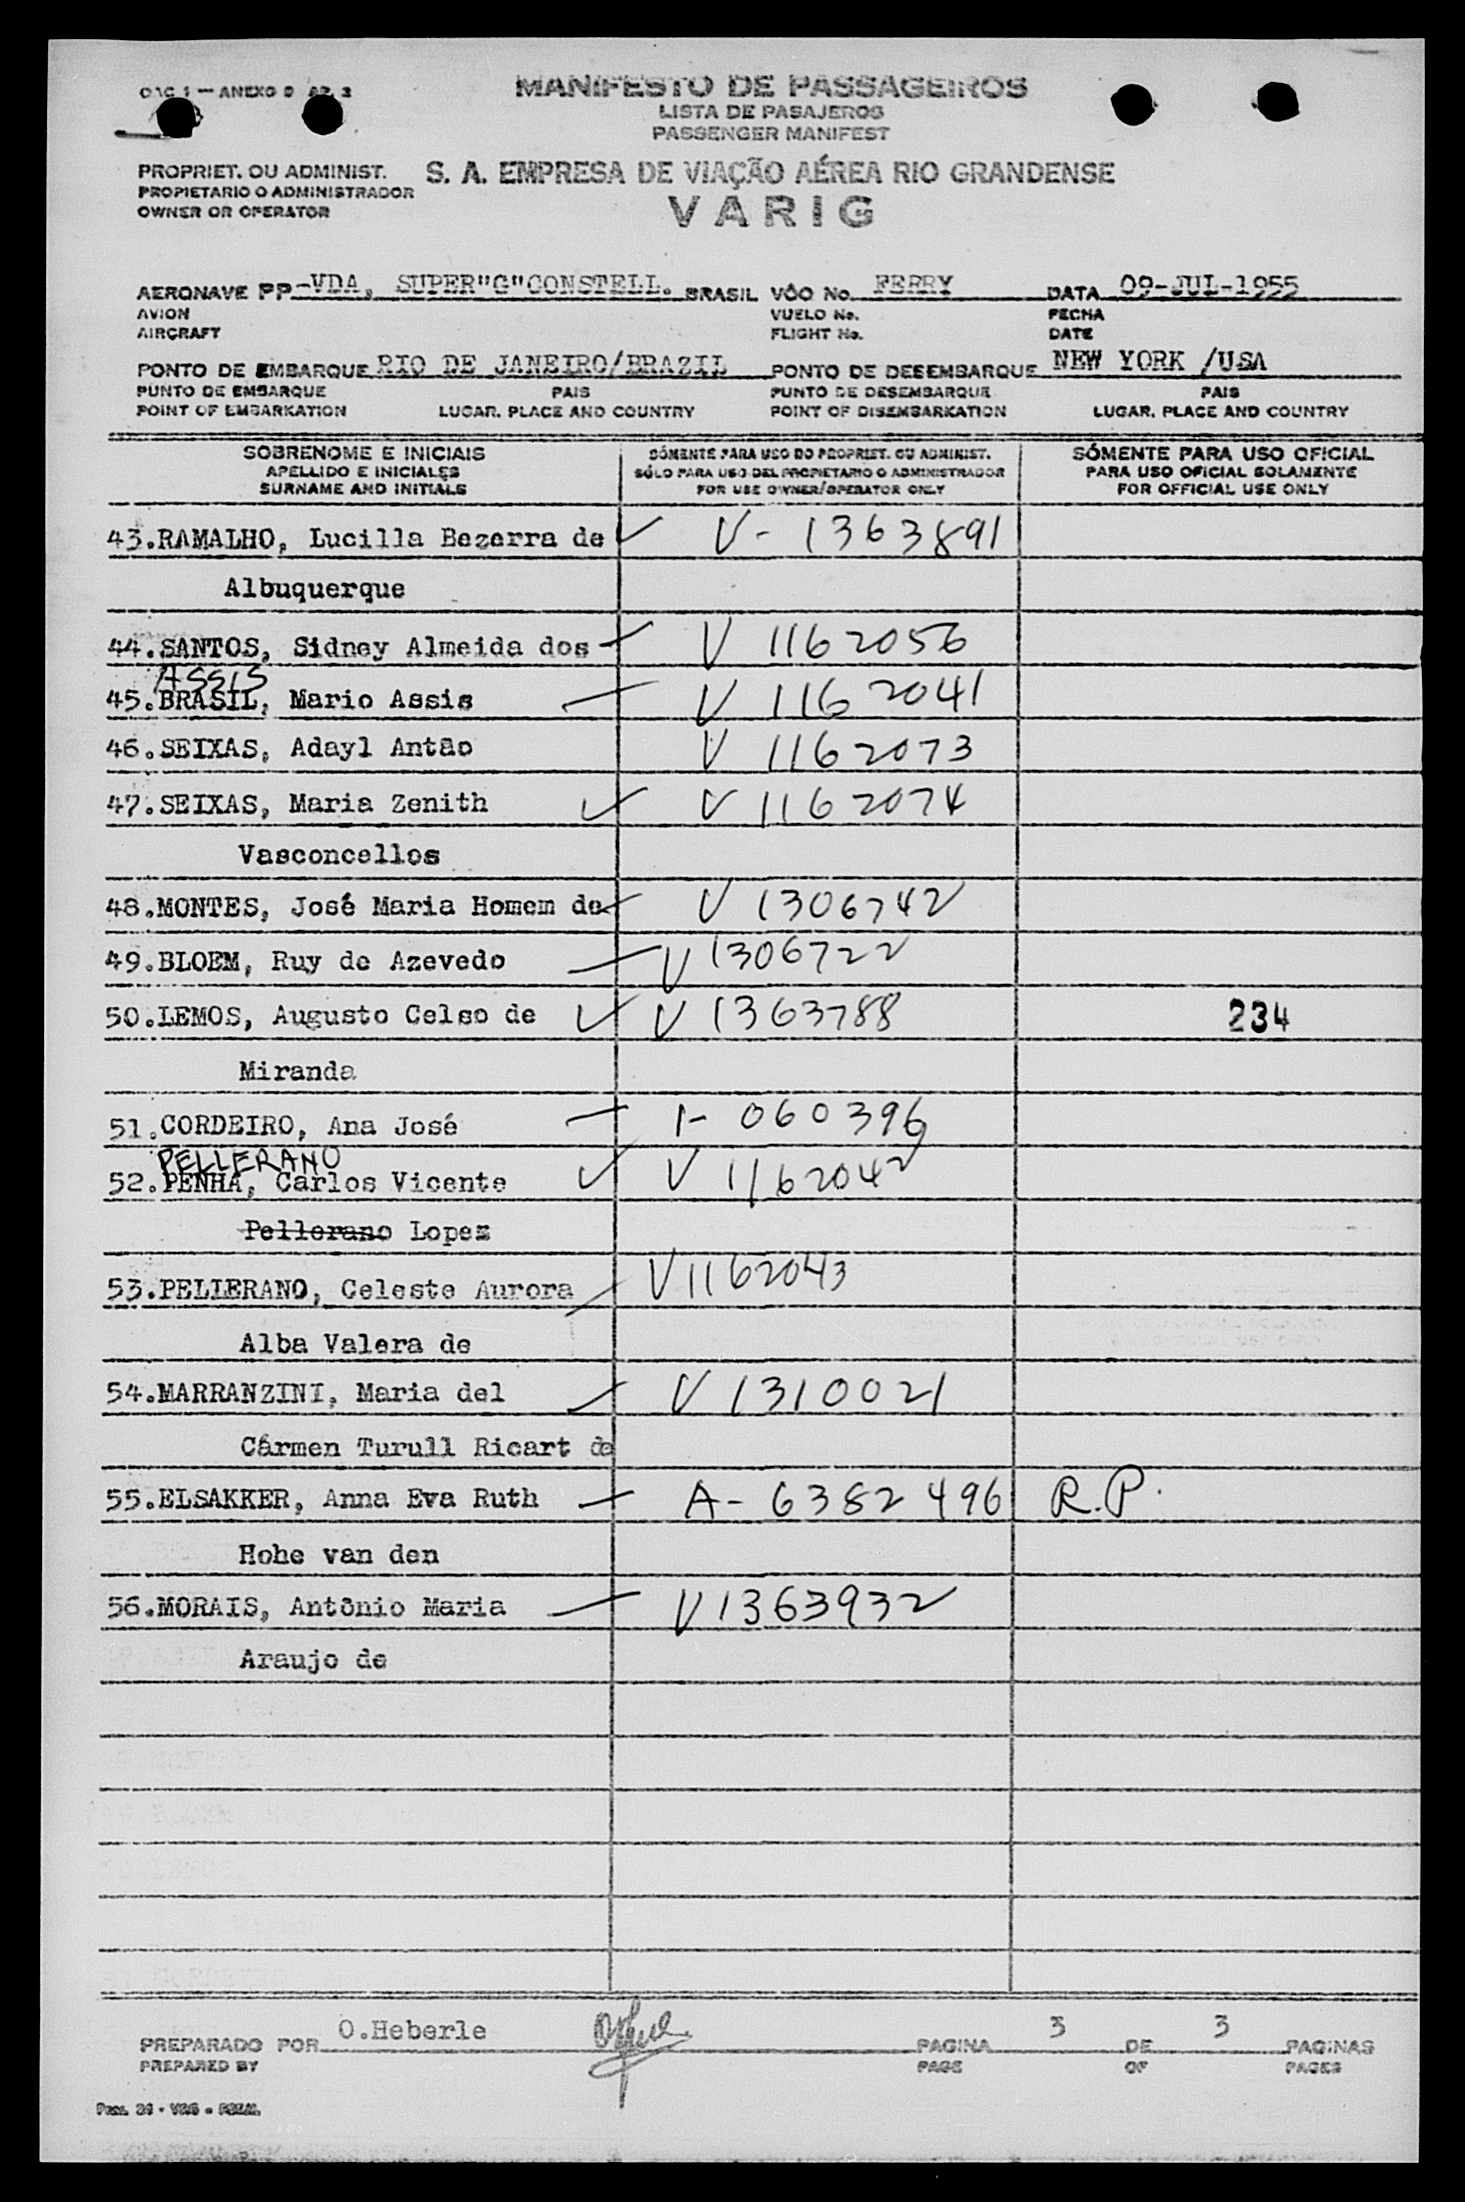 MANIFESTO DE PASSAGEIROS
LISTA DE PASAJEROS
PASSENGER MANIFEST
PROPRIET. OU ADMINIST. S. A. EMPRESA DE VIAÇÃO AÉREA RIO GRANDENSE
PROPIETARIO O ADMINISTRADOR
OWNER OR OPERATOR
VARIG
AERONAVE PP-VDA, SUPER"G"CONSTELL. BRASIL VÔO No. FERRY DATA 09-JUL-1955
AVION VUELO No. FECHA
AIRCRAFT FLIGHT No. DATE
PONTO DE EMBARQUE RIO DE JANEIRO/BRAZIL PONTO DE DESEMBARQUE NEW YORK /USA
PUNTO DE EMBARQUE PAIS PUNTO DE DESEMBARQUE PAIS
POINT OF EMBARKATION LUGAR. PLACE AND COUNTRY POINT OF DISEMBARKATION LUGAR. PLACE AND COUNTRY
SOBRENOME E INICIAIS SÓMENTE PARA USO DO PROPRIET. OU ADMINIST. SÓMENTE PARA USO OFICIAL
APELLIDO E INICIALES SÓLO PARA USO DEL PROPIETARIO O ADMINISTRADOR PARA USO OFICIAL SOLAMENTE
SURNAME AND INITIALS FOR USE OWNER/OPERATOR ONLY FOR OFFICIAL USE ONLY
43.RAMALHO, Lucilla Bezerra de V- 1363891
Albuquerque
44.SANTOS, Sidney Almeida dos V 1162056
ASSIS
45.BRASIL, Mario Assis V 1162041
46.SEIXAS, Adayl Antão V 1162073
47.SEIXAS, Maria Zenith V 1162074
Vasconcellos
48.MONTES, José Maria Homem de V 1306742
49.BLOEM, Ruy de Azevedo V 1306722
50.LEMOS, Augusto Celso de V 1363788 234
Miranda
51.CORDEIRO, Ana José I- 060396
PELLERANO
52.PENHA, Carlos Vicente V 1162042
Pellerano Lopez
53.PELLERANO, Celeste Aurora V1162043
Alba Valera de
54.MARRANZINI, Maria del V 1310021
Cármen Turull Ricart de
55.ELSAKKER, Anna Eva Ruth A- 6382496 R.P.
Hohe van den
56.MORAIS, Antônio Maria V1363932
Araujo de
PREPARADO POR O.Heberle PAGINA 3 DE 3 PAGINAS
PREPARED BY PAGE OF PAGES